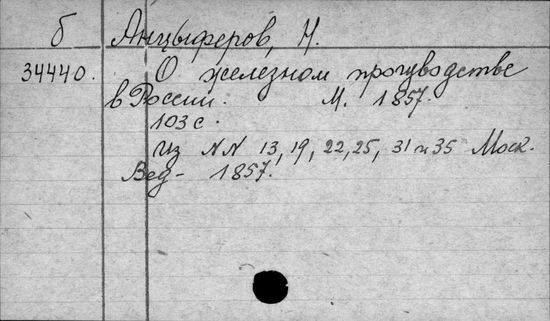 б Анцыферов, Н.
34440. О железном производстве
в России. М. 1857.
103 с.
Из NN 13, 19, 22, 25, 31 и 35 Моск.
Вед- 1857.